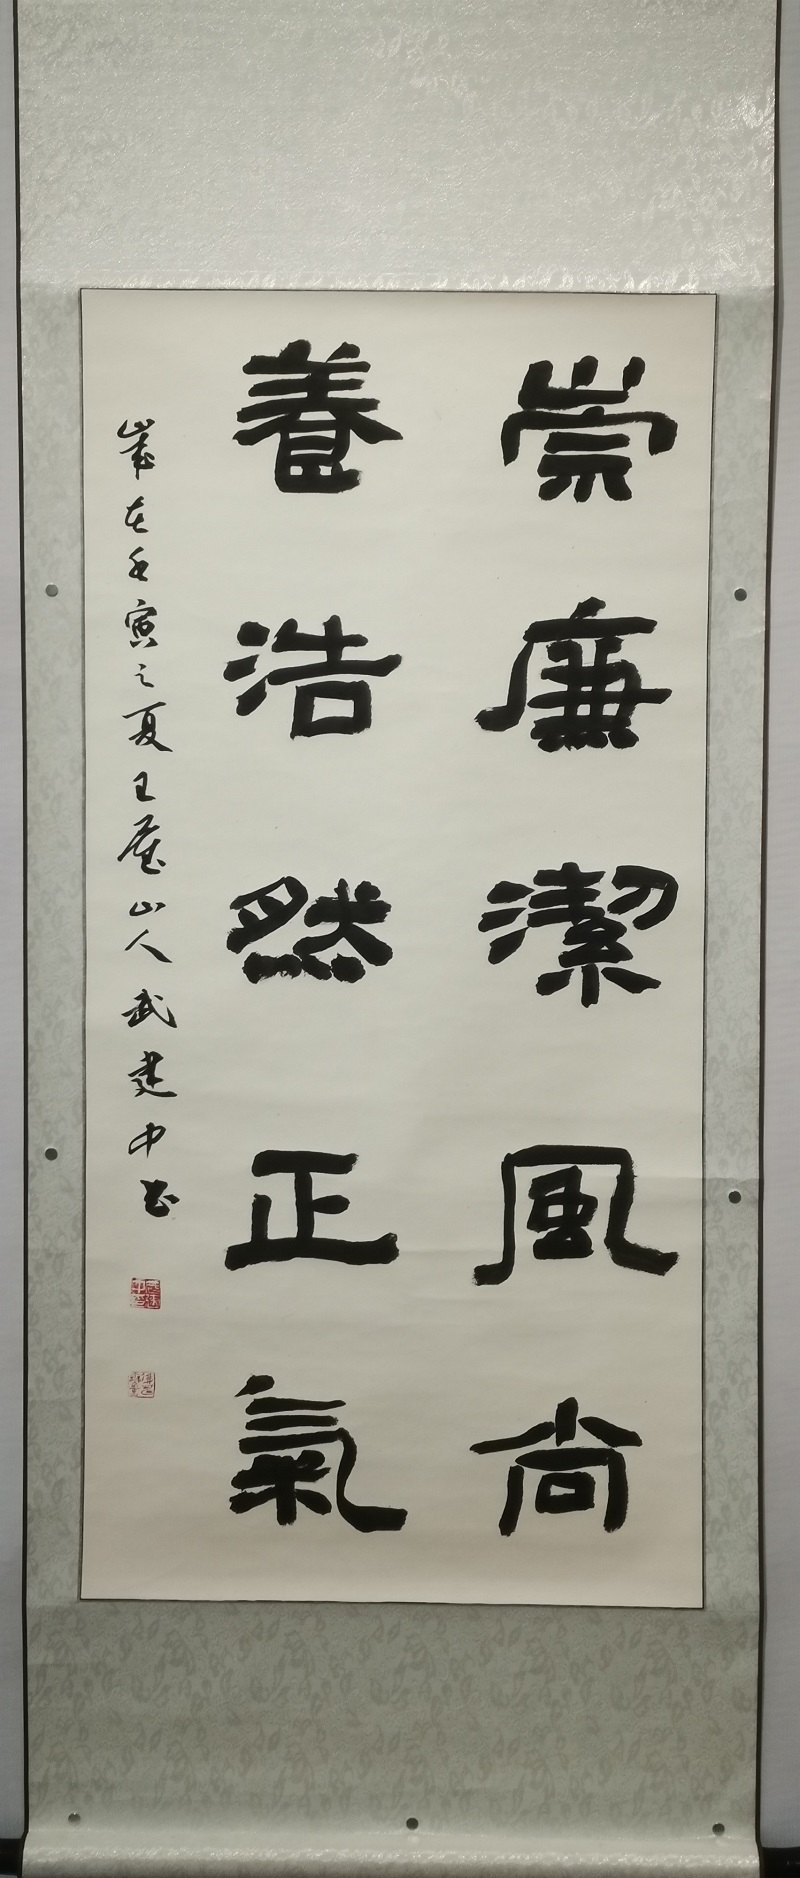 崇廉潔風尚
養浩然正氣
歲在壬寅之夏王屋山人武建中書